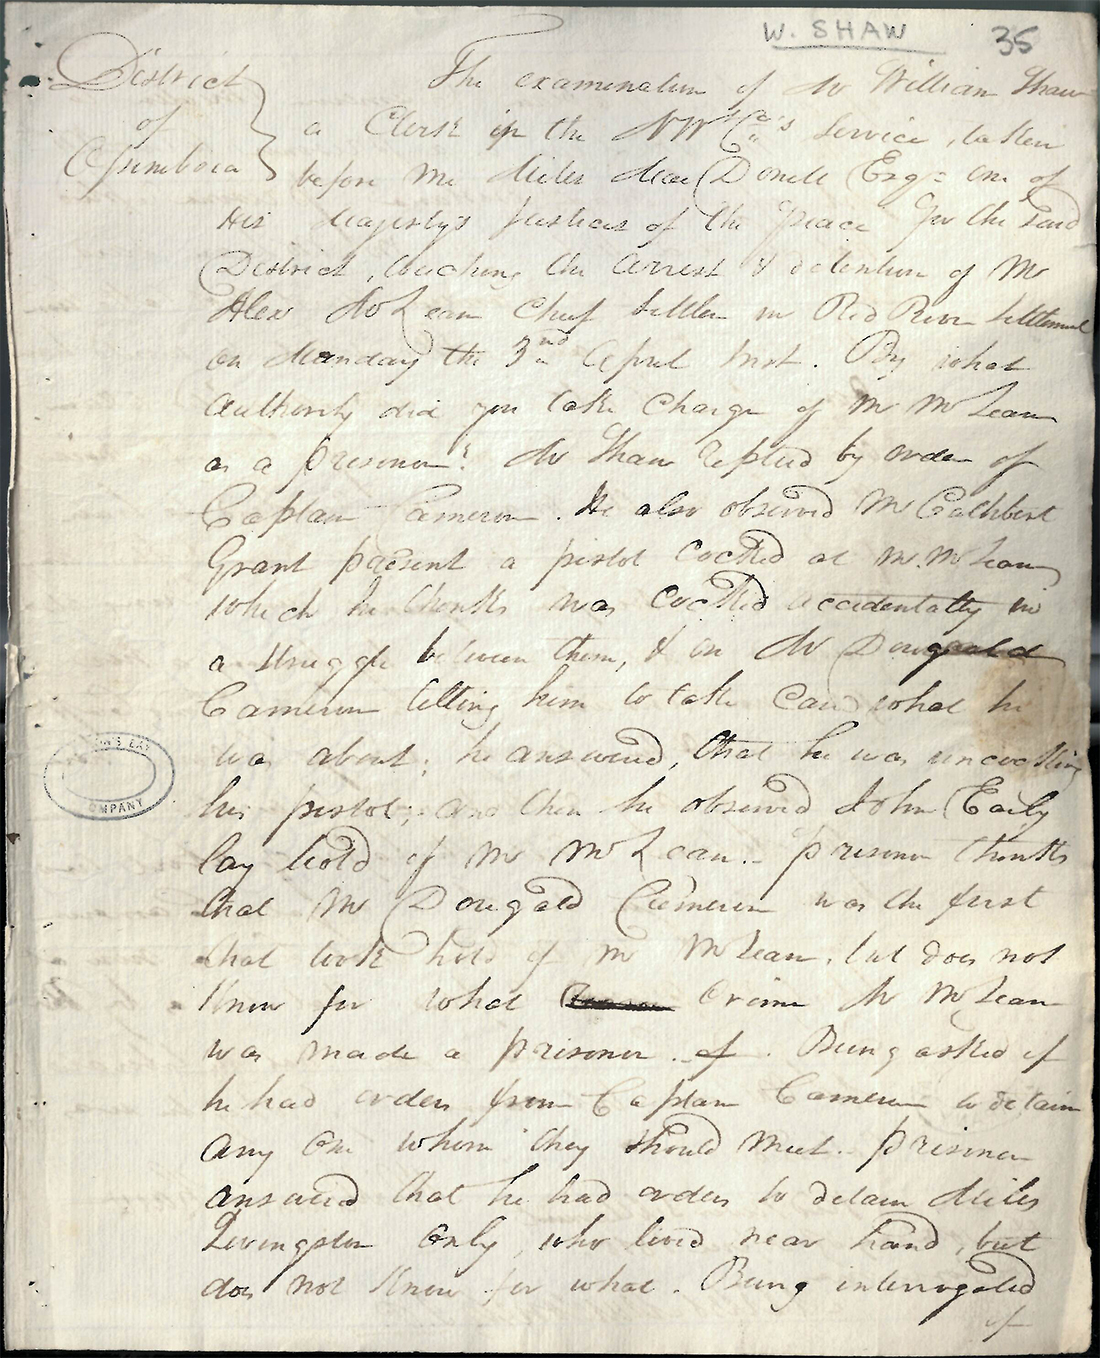 W. SHAW 35
District
of
Ossiniboia
The examination of Mr William Shaw
a Clerk in the N W Co's Service, taken
before me Miles MacDonell Esqr one of
His Majesty's Justices of the Peace for the said
District, touching the Arrest & detention of Mr
Alexr McLean Chief Settler in Red River Settlement
on Monday the 3nd April Inst. By what
Authority did you take Charge of Mr McLean
as a prisoner? Mr Shaw replied by order of
Captain Cameron. He also observed Mr Cuthbert
Grant present a pistol Cocked at Mr. McLean
which he thinks was Cocked accidentally in
a struggle between them, & on Mr Dougald
Cameron telling him to take Care what he
was about; he answered, that he was uncocking
his pistol; and then he observed John Early
lay hold of Mr McLean. prisoner thinks
that Mr Dougald Cameron was the first
that took hold of Mr McLean, but does not
Know for what Crime Mr McLean
was made a prisoner. of. Being asked if
he had orders from Captain Cameron to detain
any One whom they should meet. prisoner
answered that he had orders to detain Miles
Livingston Only, who lived near hand, but
does not Know for what. Being interrogated
if
HUDSON'S BAY
COMPANY